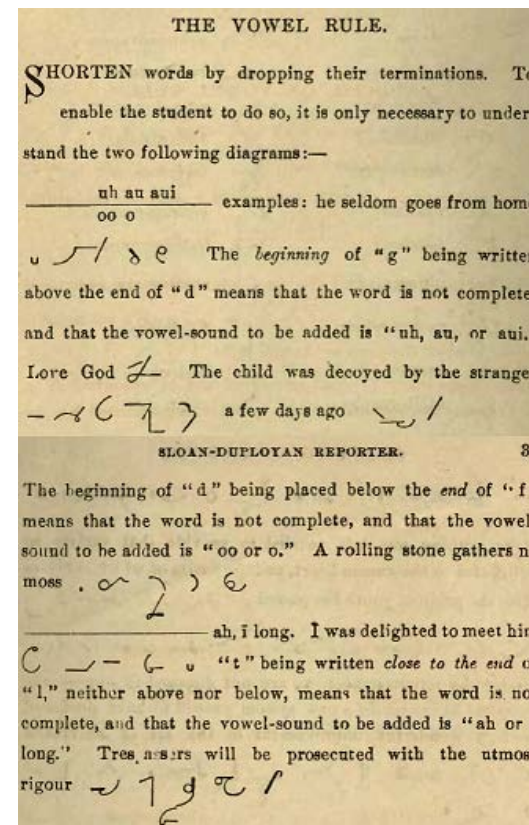 THE VOWEL RULE.
SHORTEN words by dropping their terminations. To
enable the student to do so, it is only necessary to under
stand the two following diagrams:—
uh au aui
oo o
examples: he seldom goes from hom
The beginning of "g" being writte
above the end of "d" means that the word is not complete
and that the vowel-sound to be added is "uh, au, or aui.
Love God The child was decoyed by the strange
a few days ago
SLOAN-DUPLOYAN REPORTER. 3
The beginning of "d" being placed below the end of "f
means that the word is not complete, and that the vowel
sound to be added is "oo or o." A rolling stone gathers n
moss .
ah, ī long. I was delighted to meet him
"t" being written close to the end o
"l," neither above nor below, means that the word is no
complete, and that the vowel-sound to be added is "ah or
long." Tres assers will be prosecuted with the utmos
rigour